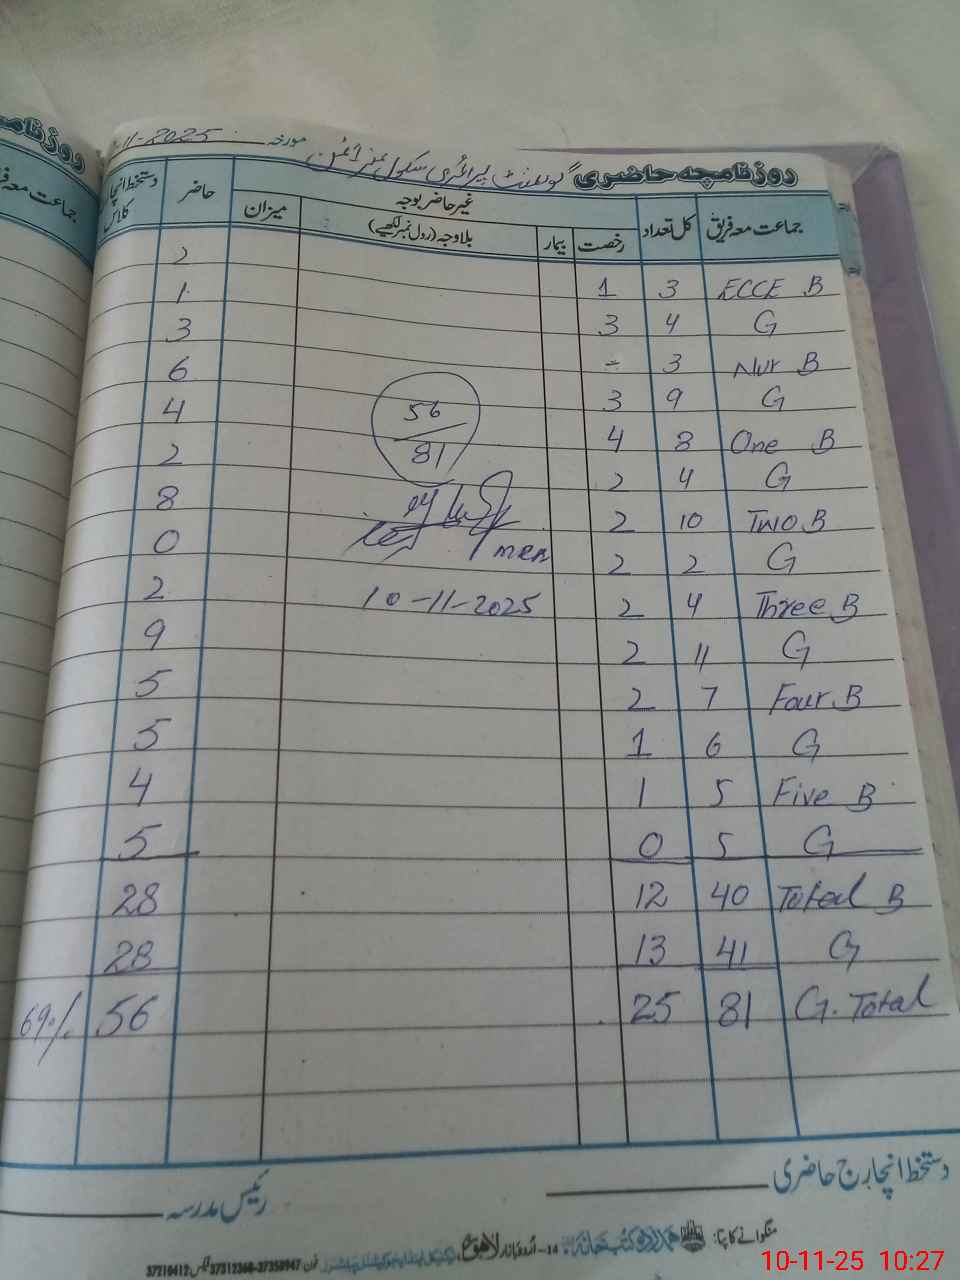 روزنامچہ حاضری گورنمنٹ پرائمری سکول مورخہ 11-2025
جماعت معہ فریق کل تعداد غیر حاضر بوجہ حاضر دستخط انچارج کلاس
رخصت بیمار بلاوجہ (رول نمبر لکھیے) میزان
ECCE B 3 1 2
G 4 3 1
Nur B 3 - 3
G 9 3 6
One B 8 4 4
G 4 2 2
Two B 10 2 8
G 2 2 0
Three B 4 2 2
G 11 2 9
Four B 7 2 5
G 6 1 5
Five B 5 1 4
G 5 0 5
Total B 40 12 28
G 41 13 28
G. Total 81 25 56 69%
56
81
10-11-2025
دستخط انچارج حاضری
رئیس مدرسہ
منگوانے کا پتا: ہمدرد کتب خانہ 14-اردو بازار لاہور
10-11-25 10:27
روزنامچہ
جماعت معہ